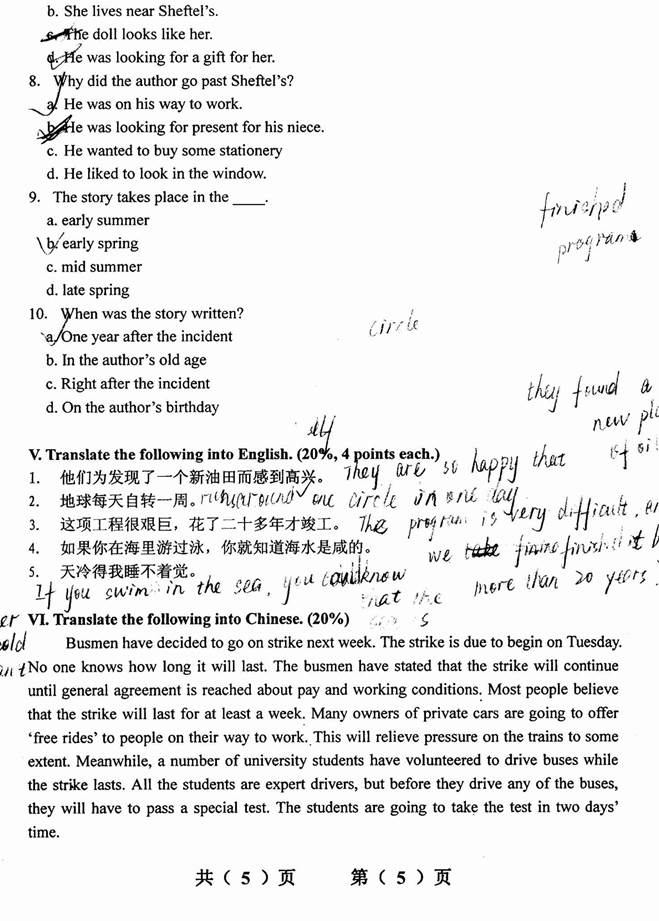 b. She lives near Sheftel's.
c. The doll looks like her.
d. He was looking for a gift for her.
8. Why did the author go past Sheftel's?
a. He was on his way to work.
b. He was looking for present for his niece.
c. He wanted to buy some stationery
d. He liked to look in the window.
9. The story takes place in the ____.
a. early summer
b. early spring
c. mid summer
d. late spring
finished
program
10. When was the story written?
a. One year after the incident
b. In the author's old age
c. Right after the incident
d. On the author's birthday
circle
they found a
new
self
V. Translate the following into English. (20%, 4 points each.)
1. 他们为发现了一个新油田而感到高兴。 They are so happy that
2. 地球每天自转一周。 runs around one circle in one day
3. 这项工程很艰巨，花了二十多年才竣工。 The program is very difficult,
4. 如果你在海里游过泳，你就知道海水是咸的。 we take finished it
5. 天冷得我睡不着觉。 more than 20 years
If you swim in the sea, you could know
that the
VI. Translate the following into Chinese. (20%)
Busmen have decided to go on strike next week. The strike is due to begin on Tuesday.
No one knows how long it will last. The busmen have stated that the strike will continue
until general agreement is reached about pay and working conditions. Most people believe
that the strike will last for at least a week. Many owners of private cars are going to offer
‘free rides’ to people on their way to work. This will relieve pressure on the trains to some
extent. Meanwhile, a number of university students have volunteered to drive buses while
the strike lasts. All the students are expert drivers, but before they drive any of the buses,
they will have to pass a special test. The students are going to take the test in two days’
time.
共（ 5 ）页 第（ 5 ）页